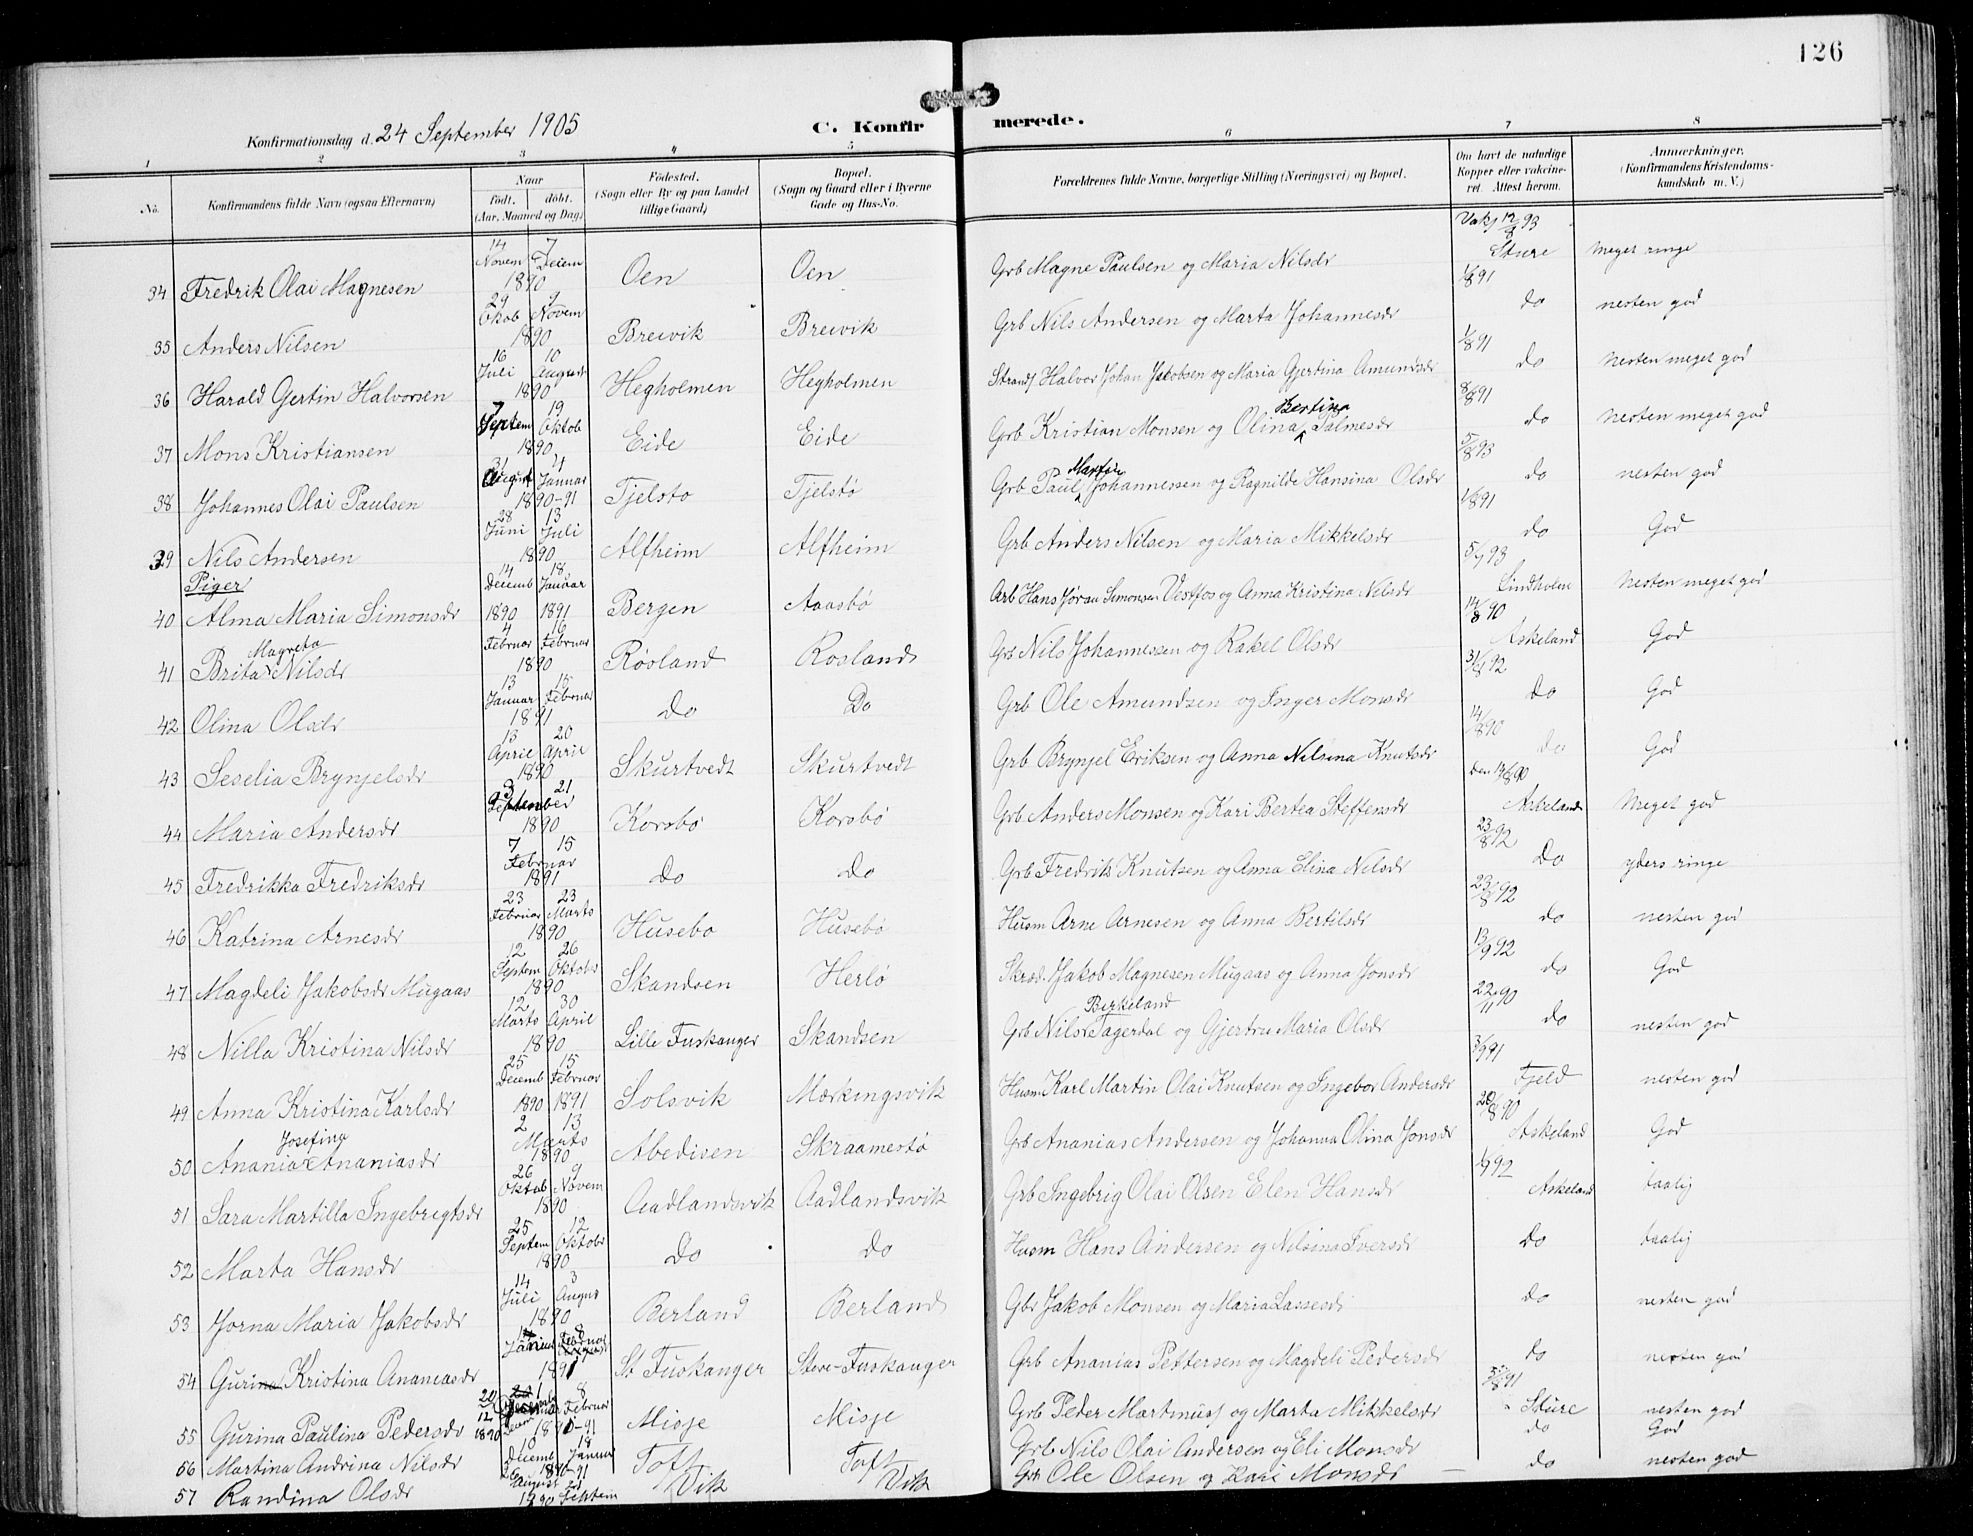 126
Konfirmationsdag d. 24 September 1905 C. Konfir merede.
1 2 3 4 5 6 7 8
No. Konfirmandens fulde Navn (ogsaa Efternavn) Naar født. døbt. (Aar, Maaned og Dag) Fødested. (Sogn eller By og paa Landet tillige Gaard) Bopæl. (Sogn og Gaard eller i Byerne Gade og Hus-No. Forældrenes fulde Navne, borgerlige Stilling (Næringsvei) og Bopæl. Om havt de naturlige Kopper eller vakcineret. Attest herom. Anmærkninger. (Konfirmandens Kristendomskundskab m. V.)
34 Fredrik Olai Magnesen 14 Novem 7 Decem 1890 Oen Oen Grb Magne Paulsen og Maria Nilsdr Vak 12/8 93 Sture Meget ringe
35 Anders Nilsen 29 Okob 9 Novem 1890 Breivik Breivik Grb Nils Andersen og Marta Johannesdr 1/8 91 do nesten god
36 Harald Gertin Halvorsen 16 Juli 10 August 1890 Hegholmen Hegholmen Strands Halvor Johan Jakobsen og Maria Gjertina Amundsdr 1/8 91 do Nesten meget god
37 Mons Kristiansen 7 Septem 19 Oktob 1890 Eide Eide Grb Kristian Monsen og Olina Bertina Salmesdr 8/8 91 do nesten meget god
38 Johannes Olai Paulsen 31 August 4 Januar 1890-91 Tjelsto Tjelstø Grb Paul Martin Johannessen og Ragnilde Hansina Olsdr 5/8 93 do nesten god
39 Nils Andersen 28 Juni 13 Juli 1890 Alfheim Alfheim Grb Anders Nilsen og Maria Mikkelsdr 1/8 91 do God
Piger
40 Alma Maria Simonsdr 14 Decemb 1890 18 Januar 1891 Bergen Aaasbø Arb Hans Jøran Simonsen Vestfos og Anna Kristina Nilsdr 5/7 93 Lindholm Nesten meget god
41 Brita Magreta Nilsdr 4 Februar 16 Februar 1890 Røsland Rosland Grb Nils Johannessen og Rakel Olsdr 14/8 90 Askeland God
42 Olina Olsdr 13 Januar 15 Februar 1891 Do Do Grb Ole Amundsen og Inger Monsdr 31/ 92 Do God
43 Seselia Brynjelsdr 13 April 20 April 1890 Skurtvedt Skurtvedt Grb Brynjel Eriksen og Anna Nilsina Knutsdr 14/8 90 do God
44 Maria Andersdr 3 21 September 1890 Korsbø Korsbø Grb Anders Monsen og Kari Bertea Steffensdr den 14/8 90 Askeland Meget god
45 Fredrikka Fredriksdr 7 15 Februar 1891 do do Grb Fredrik Knutsen og Anna Elina Nilsdr 23/8 92 Do yders ringe
46 Katrina Arnesdr 23 Februar 23 Marts 1890 Husebo Husebø Husm Arne Arnesen og Anna Bertilsdr 23/8 92 do nesten god
47 Magdeli Jakobsdr Mugaas 12 Septem 26 Oktober 1890 Skandsen Herlø Skræd. Jakob Magnesen Mugaas og Anna Jonsdr 13/9 92 do God
48 Nilla Kristina Nilsdr 12 Marts 30 April 1890 Lille Fuskanger Skandsen Grb Nils Birkeland Tagerdal og Gjertru Maria Olsdr 22/11 90 do nesten god
49 Anna Kristina Karlsdr 25 Decemb 1890 15 Februar 1891 Solsvik Mærkingsvik Husm Karl Martin Olai Knutsen og Ingebor Andersdr 3/9 91 Fjeld nesten god
50 Ananias Josefina Ananiasdr 2 13 Marts 1890 Abedisen Skraamestø Grb Ananias Andersen og Johanna Olina Jonsdr 20/8 90 Askeland God
51 Sara Martilla Ingebregtsdr 26 Oktob 9 Novem 1890 Aadlandsvik Aadlandsvik Grb Ingebrig Olai Olsen Elen Hansdr 92 Askeland taalig
52 Marta Hansdr 25 Septem 12 Oktobr 1890 Do do Husm Hans Andersen og Nilsina Iversdr Do taalig
53 Jorna Maria Jakobsdr 14 Juli 3 Augus 1890 Berland Berland Gbr Jakob Monsen og Maria Lassesd do nesten god
54 Gurina Kristina Ananiasdr Januar 8 Februar 1891 St Fuskanger Store-Fuskanger Grb Ananias Pettersen og Magdeli Pedersdr do nesten god
55 Gurina Paulina Pedersdr 22/12 1890 8 Februar 1890-91 Misje Misje Grb Peder Martinus og Marta Mikkelsdr 5/8 91 Sture nesten god
56 Martina Andrina Nilsdr 10 Decemb 18 Januar 1890-91 Toft Toft Grb Nils Olai Andersen og Eli Monsdr do God
57 Randina Olsdr August 21 Septem 1890 Vik Vik Grb Ole Olsen og Kari Monsdr do nesten god